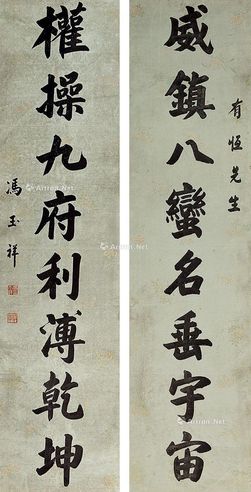 有恆先生
威鎮八蠻名垂宇宙
權操九府利溥乾坤
馮玉祥
Artron.Net